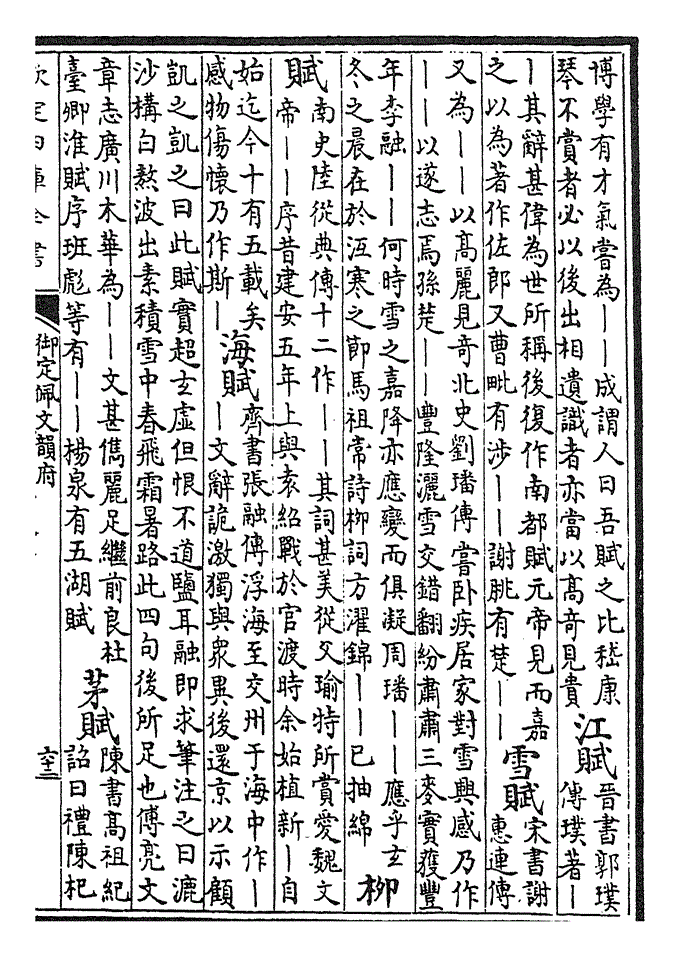 博學有才氣嘗為——成謂人曰吾賦之比嵇康
琴不賞者必以後出相遺識者亦當以高奇見貴
江賦
晉書郭璞
傳璞著—
—其辭甚偉為世所稱後復作南都賦元帝見而嘉
之以為著作佐郎又曹毗有涉——謝朓有楚——
雪賦
宋書謝
惠連傳
又為——以高麗見奇北史劉璠傳嘗臥疾居家對雪興感乃作
——以遂志焉孫楚——豐隆灑雪交錯翻紛肅肅三麥實獲豐
年李融——何時雪之嘉降亦應變而俱凝周璠——應乎玄
冬之晨在於沍寒之節馬祖常詩柳詞方濯錦——已抽綿
柳
賦
南史陸從典傳十二作——其詞甚美從父瑜特所賞愛魏文
帝——序昔建安五年上與袁紹戰於官渡時余始植新—自
始迄今十有五載矣
感物傷懷乃作斯—
海賦
齊書張融傳浮海至交州于海中作—
—文辭詭激獨與衆異後還京以示顧
凱之凱之曰此賦實超玄虛但恨不道鹽耳融即求筆注之曰漉
沙構白熬波出素積雪中春飛霜暑路此四句後所足也傅亮文
章志廣川木華為——文甚儁麗足繼前良杜
臺卿淮賦序班彪等有——楊泉有五湖賦
茅賦
陳書高祖紀
詔曰禮陳杞
欽定四庫全書
御定佩文韻府